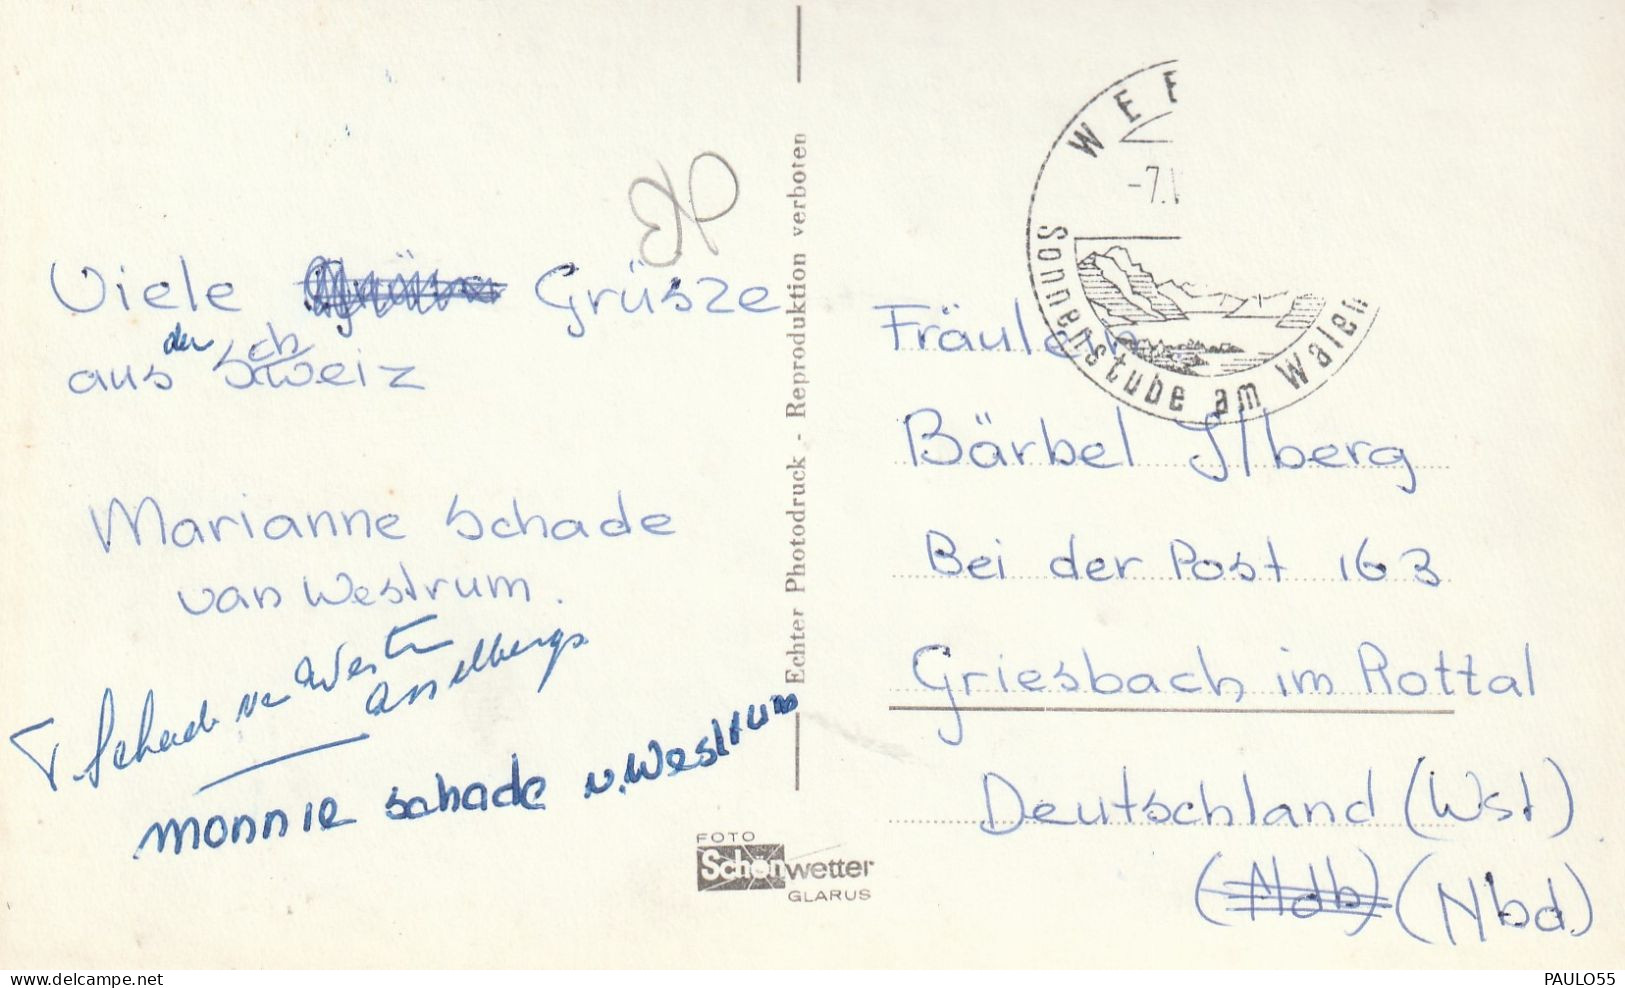 Viele Grüsze
aus der Schweiz
Marianne Schade
van Westrum.
Monnie Schade v. Westrum
Echter Photodruck - Reproduktion verboten
FOTO
Schönwetter
GLARUS
WEE
-7.
Sonnenstube am Walen
Fräulein
Bärbel Ilberg
Bei der Post 163
Griesbach im Rottal
Deutschland (Wst)
(Ndb) (Nbd.)
delcampe.net
PAULO55